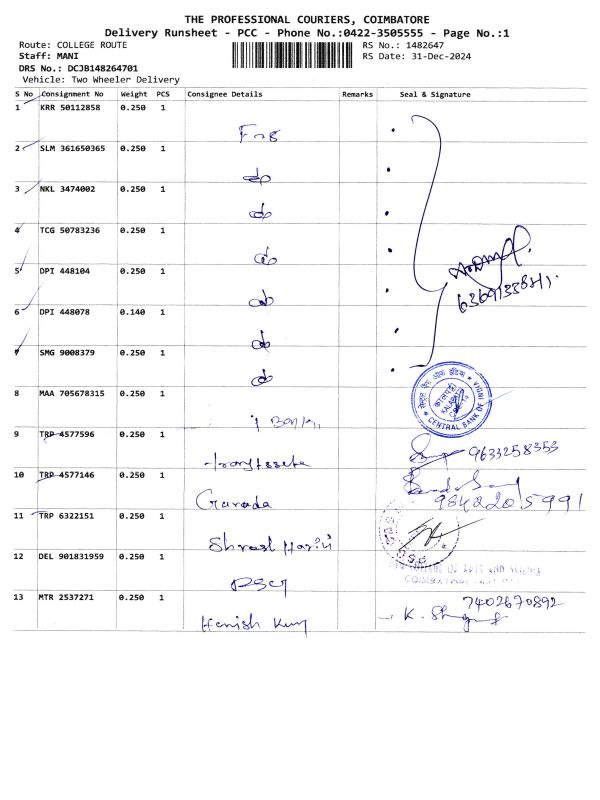 THE PROFESSIONAL COURIERS, COIMBATORE
Delivery Runsheet - PCC - Phone No.:0422-3505555 - Page No.:1
Route: COLLEGE ROUTE RS No.: 1482647
Staff: MANI RS Date: 31-Dec-2024
DRS No.: DCJB148264701
Vehicle: Two Wheeler Delivery
S No Consignment No Weight PCS Consignee Details Remarks Seal & Signature
1 KRR 50112858 0.250 1
2 SLM 361650365 0.250 1
do
3 NKL 3474002 0.250 1
do
4 TCG 50783236 0.250 1
do
5 DPI 448104 0.250 1
do
6 DPI 448078 0.140 1
do
7 SMG 9008379 0.250 1
do
8 MAA 705678315 0.250 1
CENTRAL BANK OF
9 TRP 4577596 0.250 1
9633258353
10 TRP 4577146 0.250 1
Garuda 9842205991
11 TRP 6322151 0.250 1
12 DEL 901831959 0.250 1
COLLEGE OF ARTS AND SCIENCE
COIMBATORE
13 MTR 2537271 0.250 1
7402670892
Harish K.